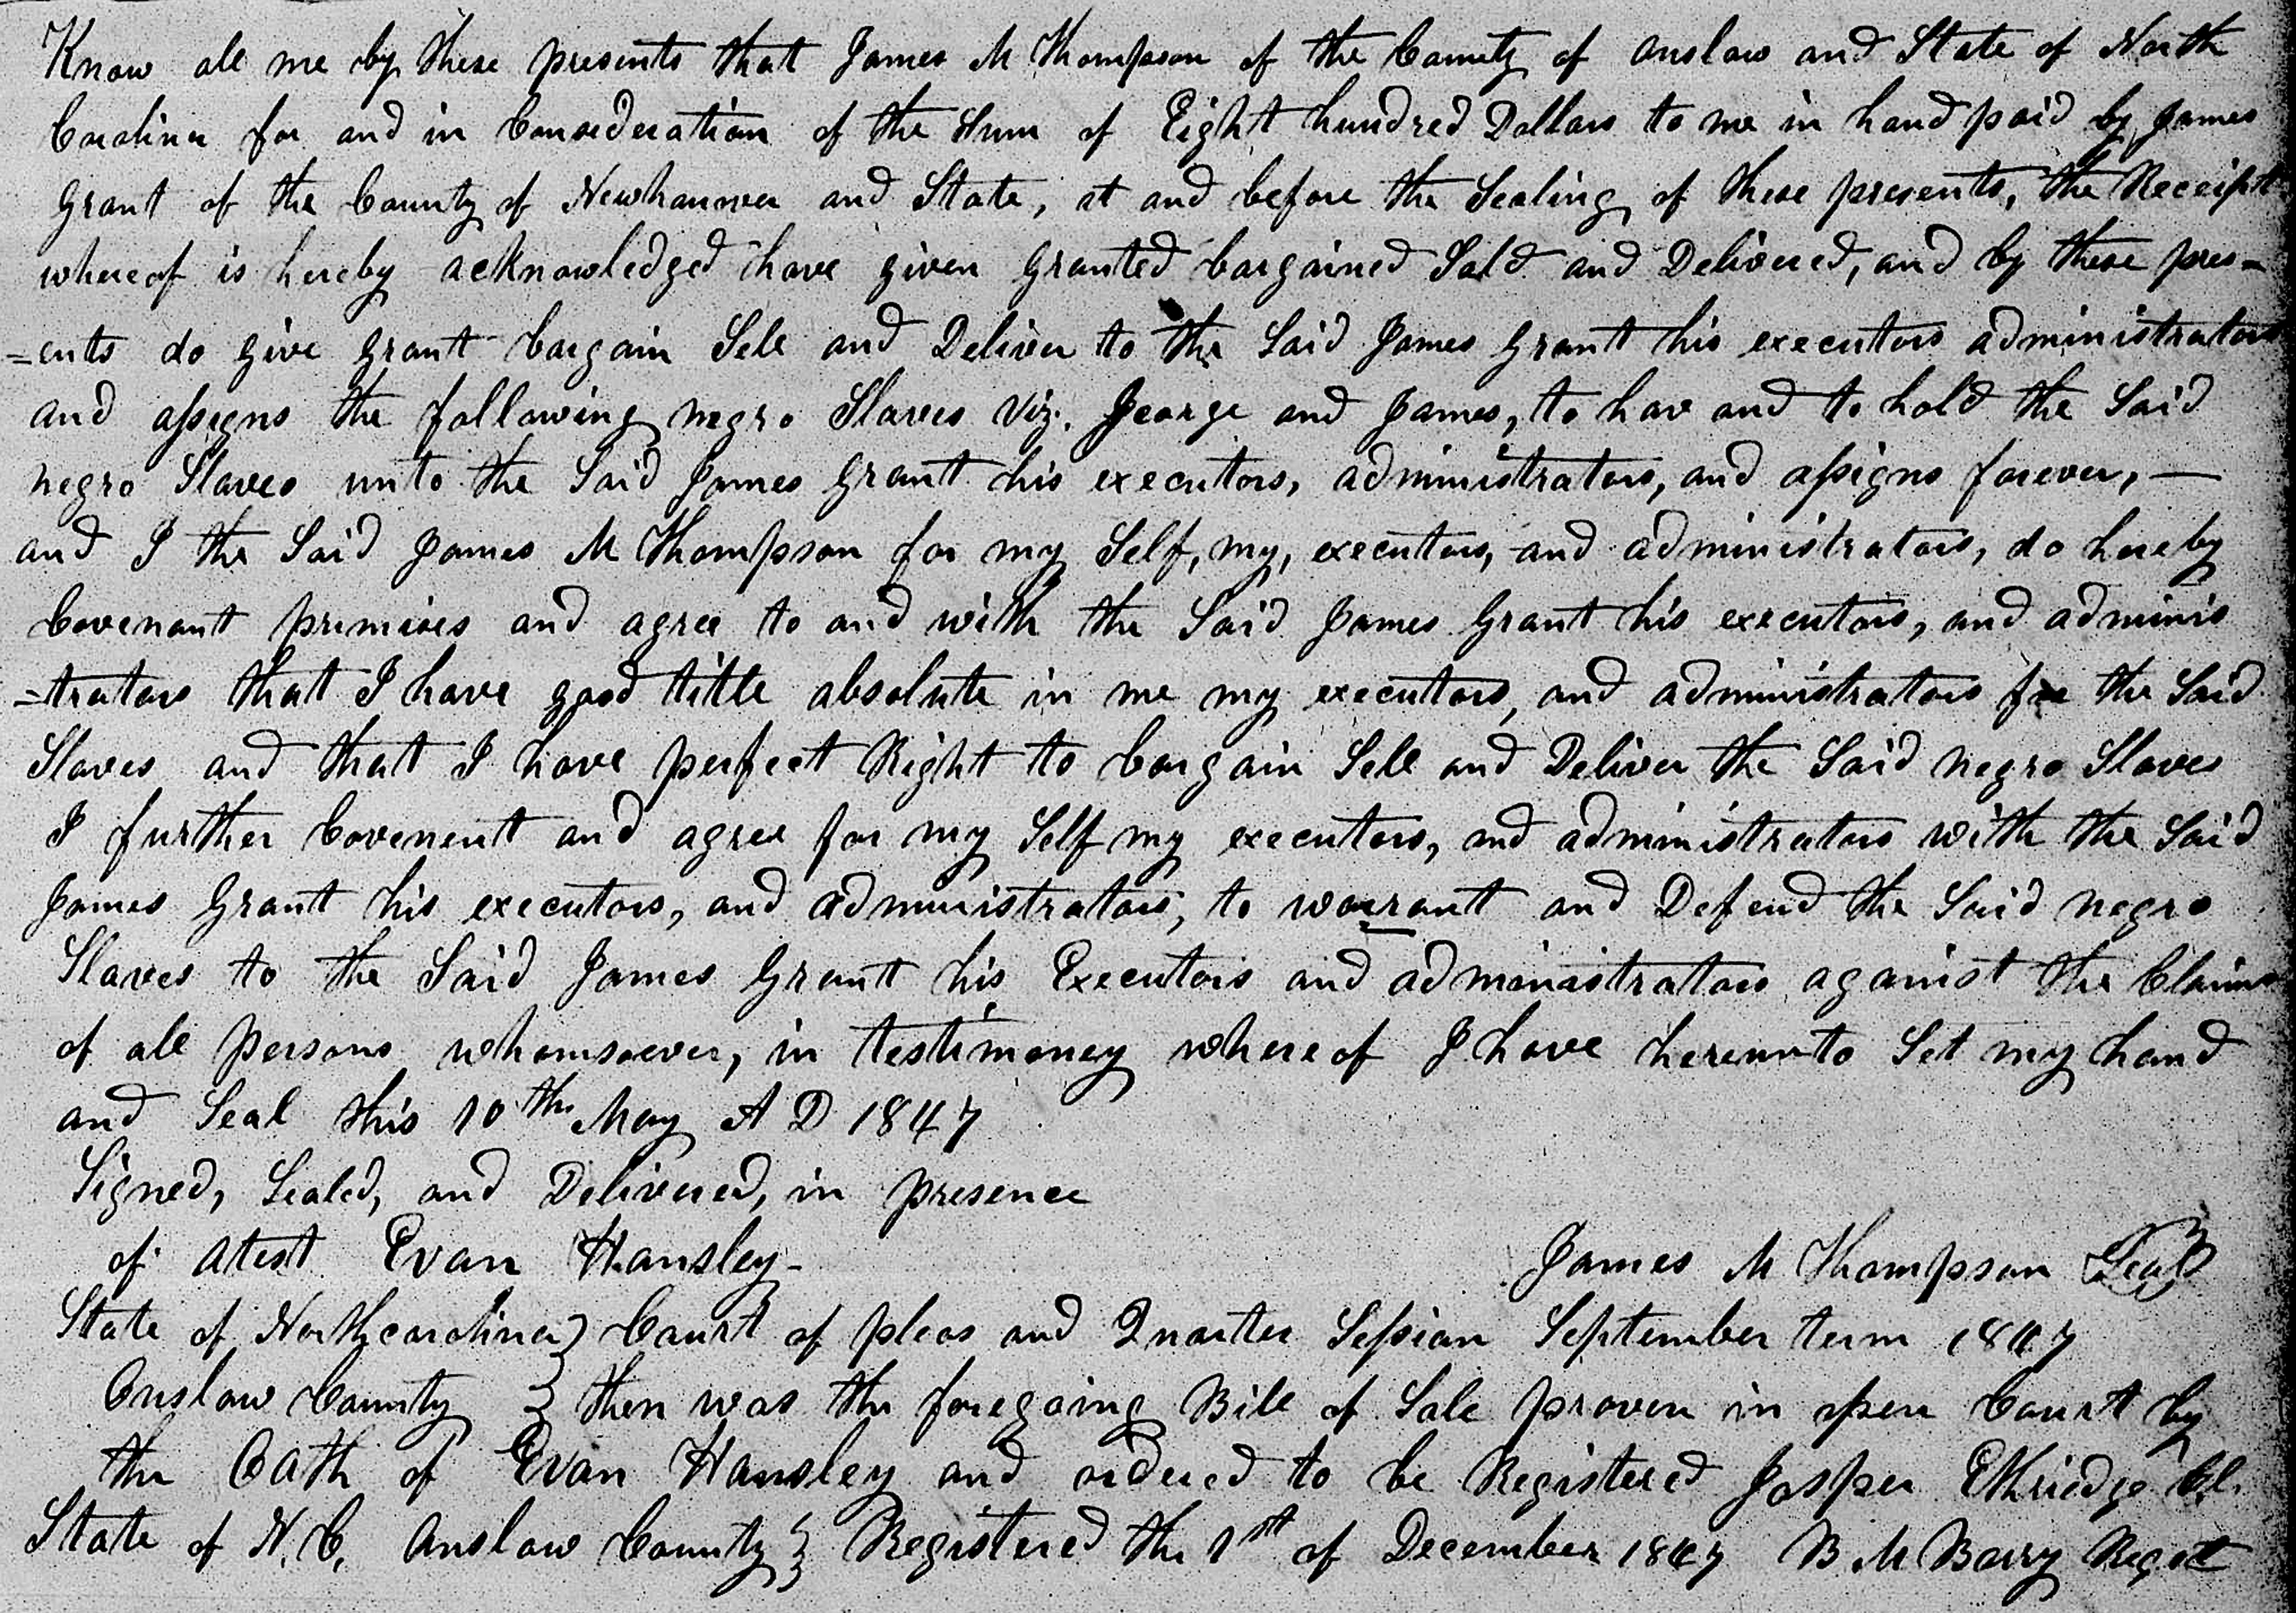 Know all me by these presents that James M Thompson of the County of Onslow and State of North
Carolina for and in Consideration of the Sum of Eight hundred Dollars to me in hand paid by James
Grant of the County of Newhanner and State, at and before the Sealing of these presents, the Receipt
whereof is hereby acknowledged have given granted bargained Sold and Delivered, and by these pres-
=ents do give grant bargain Sell and Deliver to the Said James Grant his executors administrators
and assigns the following negro Slaves Viz. George and James, to hav and to hold the Said
negro Slaves unto the Said James Grant his executors, administrators, and assigns forever, —
and I the Said James M Thompson for my Self, my, executors, and administrators, do hereby
Covenant premises and agree to and with the Said James Grant his executors, and adminis
=trators that I have good tittle absolute in me my executors, and administrators for the Said
Slaves and that I have perfect Right to bargain Sell and Deliver the Said negro Slaves
I further Covenent and agree for my Self my executors, and administrators with the Said
James Grant his executors, and administrators, to warrant and Defend the Said negro
Slaves to the Said James Grant his Executors and administrators against the Claims
of all persons whomsoever, in testimoney whereof I have hereunto Set my hand
and Seal this 10th May A D 1847
Signed, Sealed, and Delivered, in presence
of atest Evan Hansley- James M Thompson Seal
State of Northcarolina } Court of pleas and Quarter Session September term 1847
Onslow County } then was the foregoing Bill of Sale proven in open Court by
the Oath of Evan Hansley and ordered to be Registered Jasper Ethridge Cl.
State of N.C. Onslow County } Registered the 1st of December 1847 B M Barry Regst